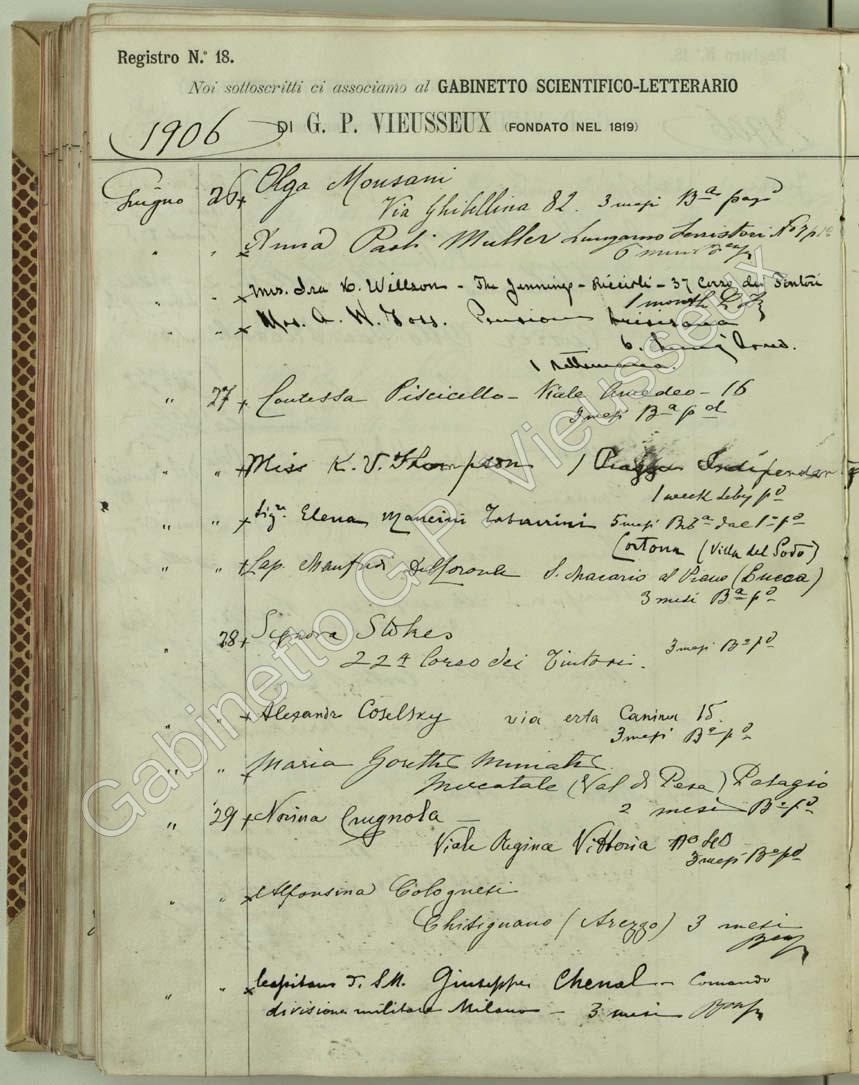 Registro N.º 18.
Noi sottoscritti ci associamo al GABINETTO SCIENTIFICO-LETTERARIO
1906
DI G. P. VIEUSSEUX (FONDATO NEL 1819)
Giugno 26 Olga Monsani
Via Ghibellina 82. 3 mesi Bª
" " Anna Paoli Muller Lungarno Serristori
" " Mrs. Ira K. Willson - The Jennings-Riccioli - 37 Corso dei Tintori
1 month
" " Mrs. A. W. Foss. Pensione
1 settimana.
" 27 Contessa Piscicello - Viale Amedeo - 16
3 mesi Bª pd
" " Miss K. V. Thompson 1 Piazza
1 week pd
" " Sigra Elena Mancini Tabarrini 5 mesi
Cortona (Villa del Sodo)
" " Cap. Manfredi S. Macario al Piano (Lucca)
3 mesi Bª pd
" 28 Signora Stokes 3 mesi Bª pd
22 Corso dei Tintori.
" " Alexandre Coselsky via erta Canina 15.
3 mesi Bª pd
" " Maria
Mercatale (Val di Pesa)
" 29 Norina Crugnola — 2 mesi Bª pd
Viale Regina Vittoria
3 mesi Bª pd
" " Alfonsina Colognesi
Chitignano (Arezzo) 3 mesi
" " Capitano di S.M. Giuseppe Chenal - Comando
divisione militare Milano - 3 mesi
Gabinetto G.P. Vieusseux